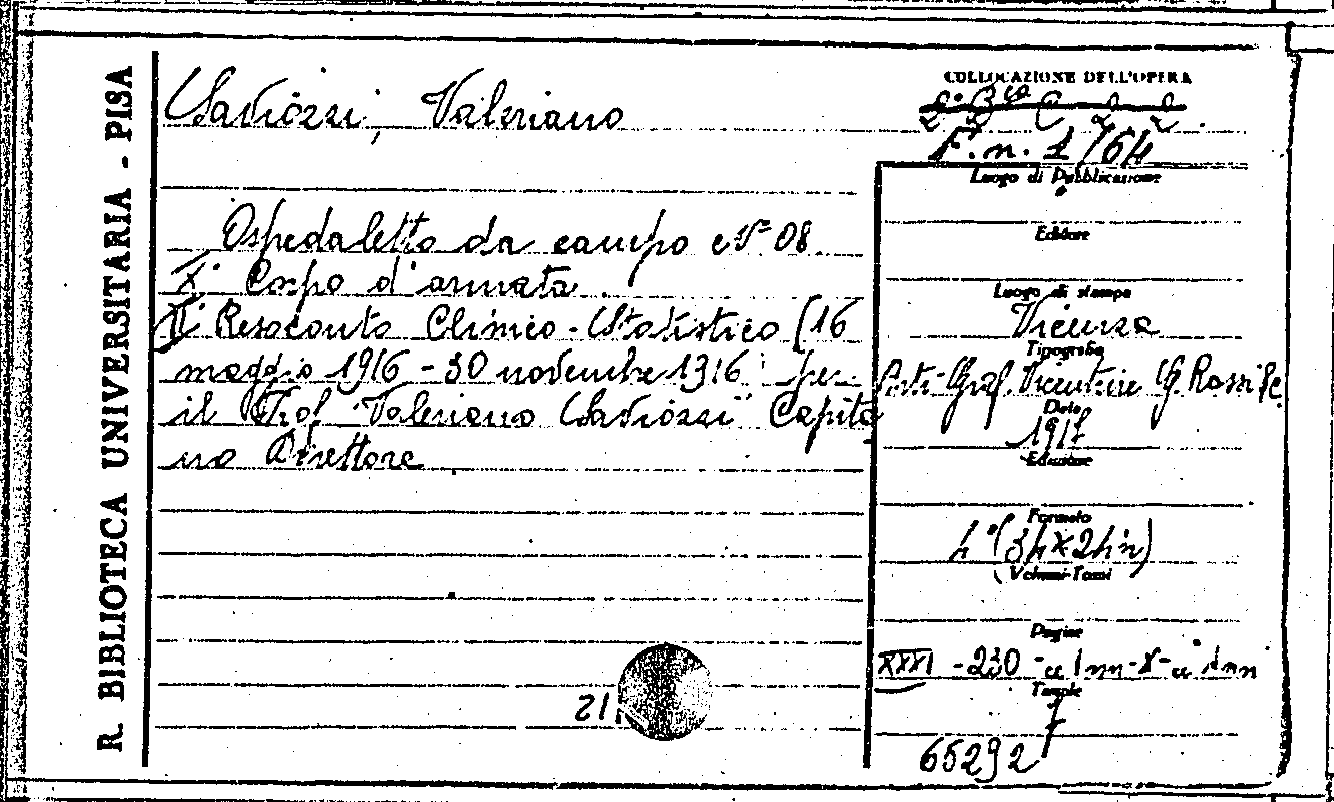 R. BIBLIOTECA UNIVERSITARIA - PISA
Saviozzi, Valeriano
Ospedaletto da campo N° 08
X° Corpo d'armata
II° Resoconto Clinico-Statistico (16
maggio 1916 - 30 novembre 1916 per
il Prof. Valeriano Saviozzi Capita
no Direttore
21
COLLOCAZIONE DELL'OPERA
F. n. 1764
Luogo di Pubblicazione
Editore
Luogo di stampa
Vicenza
Tipografia
Arti-Graf. Vicentine G. Rossi &c
Data
1917
Edizione
Formato
4° (34x24)
Volumi-Tomi
Pagine
XXXI - 230
Tavole
65292